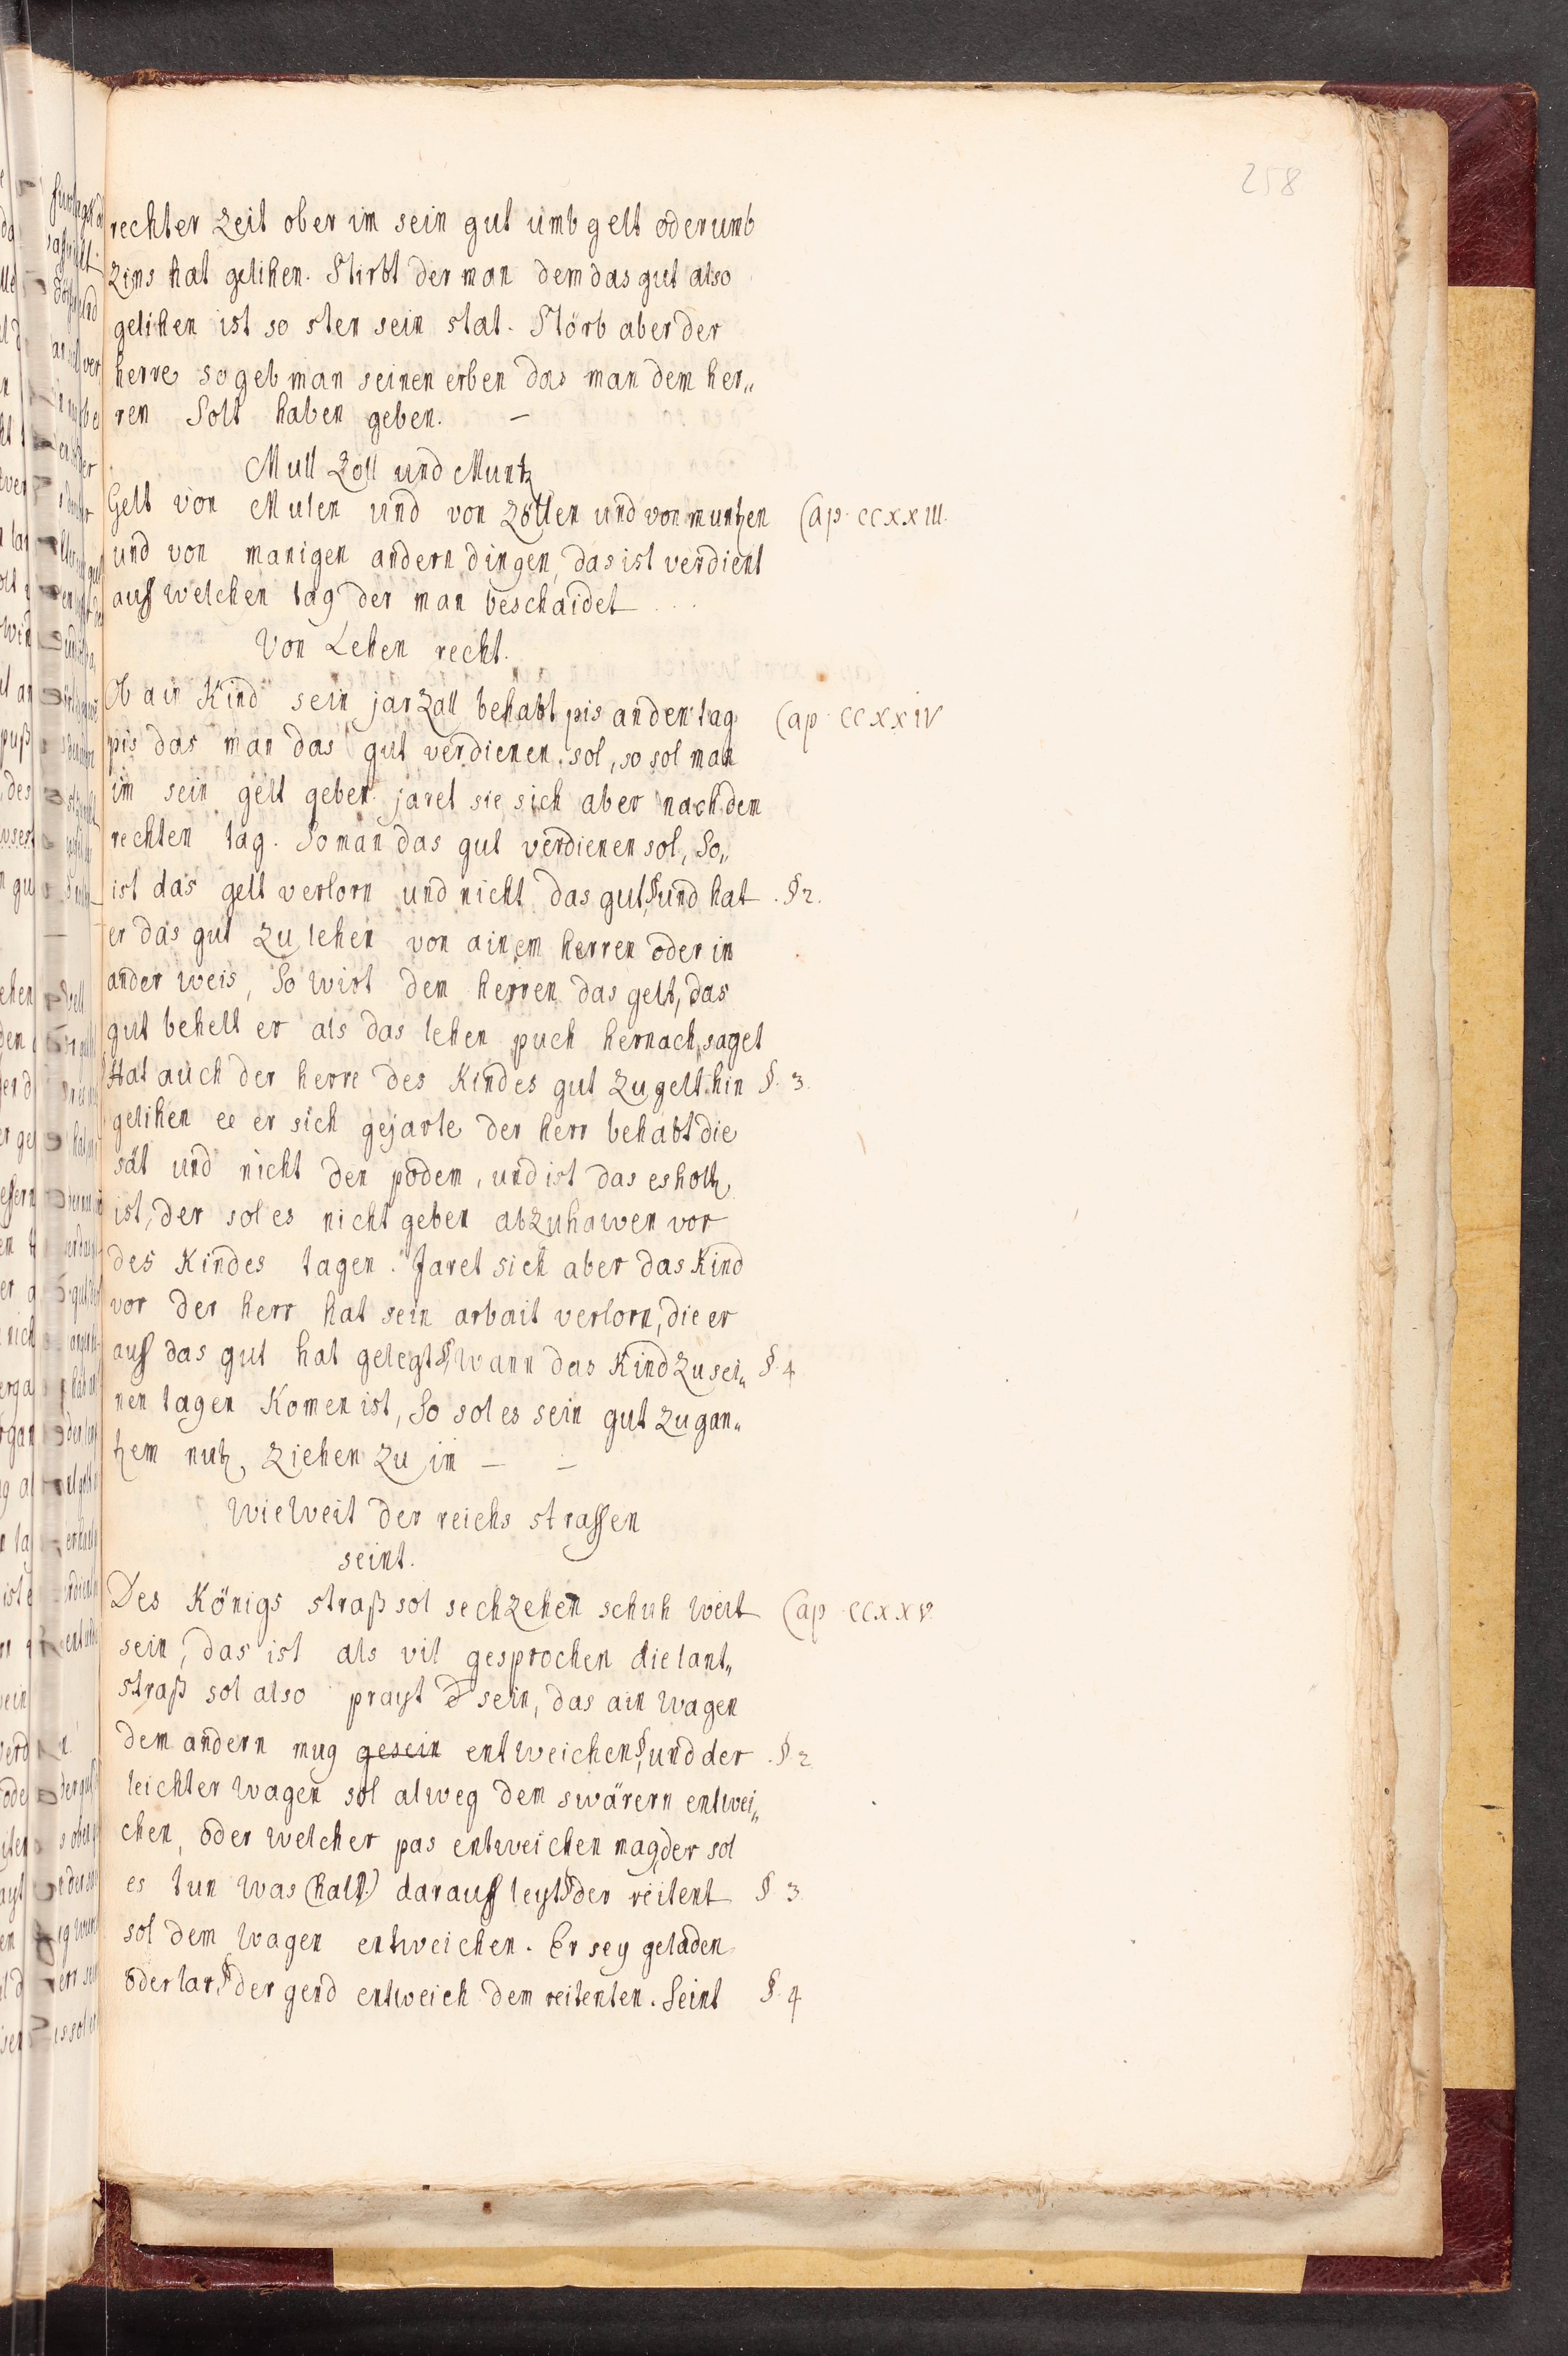 258
rechter Zeit ober im sein gut umb gelt oder umb
Zins hat gelihen. Stirbt der man dem das gut also
gelihen ist so sten sein stat. Störb aber der
herre so geb man seinen erben das man dem her„
ren Solt haben geben. —
Mull Zoll und Muntz
Gelt von Mulen und von Zöllen und von muntzen Cap. CCXXIII.
und von manigen andern dingen, das ist verdient
auff welchen tag der man beschaidet
Von Lehen recht.
Ob ain Kind sein jarzall behabt pis an den tag Cap. CCXXIV
pis das man das gut verdienen sol, so sol man
im sein gelt geben jaret sie sich aber nach dem
rechten tag. So man das gut verdienen sol, So„
ist das gelt verlorn und nicht das gut,§ und hat . §2.
er das gut zu lehen von ainem herren oder in
ander weis, So wirt dem herren das gelt, das
gut behelt er als das lehen puch hernach saget
Hat auch der herre des Kindes gut zu gelt hin §. 3.
gelihen ee er sich gejarte der herr behabt die
sät und nicht den podem, und ist das es holtz
ist, der sol es nicht geben abzuhawen vor
des Kindes tagen. Jaret sich aber das Kind
vor der herr hat sein arbait verlorn, die er
auff das gut hat gelegt § wann das Kind zu sei„ §. 4
nen tagen Komen ist, So sol es sein gut zu gan„
tzem nutz ziehen zu im — —
Wie weit der reichs strassen
seint.
Des Königs straß sol sechzehen schuh weit Cap CCXXV
sein, das ist als vil gesprochen die lant„
straß sol also prayt sein, das ain wagen
dem andern mug gesein entweichen,§ und der . §2
leichter wagen sol alweg dem swärern entwei„
chen, oder welcher pas entweichen mag, der sol
es tun was (halt) darauff leyt § der reitent § 3.
sol dem wagen entweichen. Er sey geladen
oder lar,§ der gend entweich dem reitenten. Seint §. 4